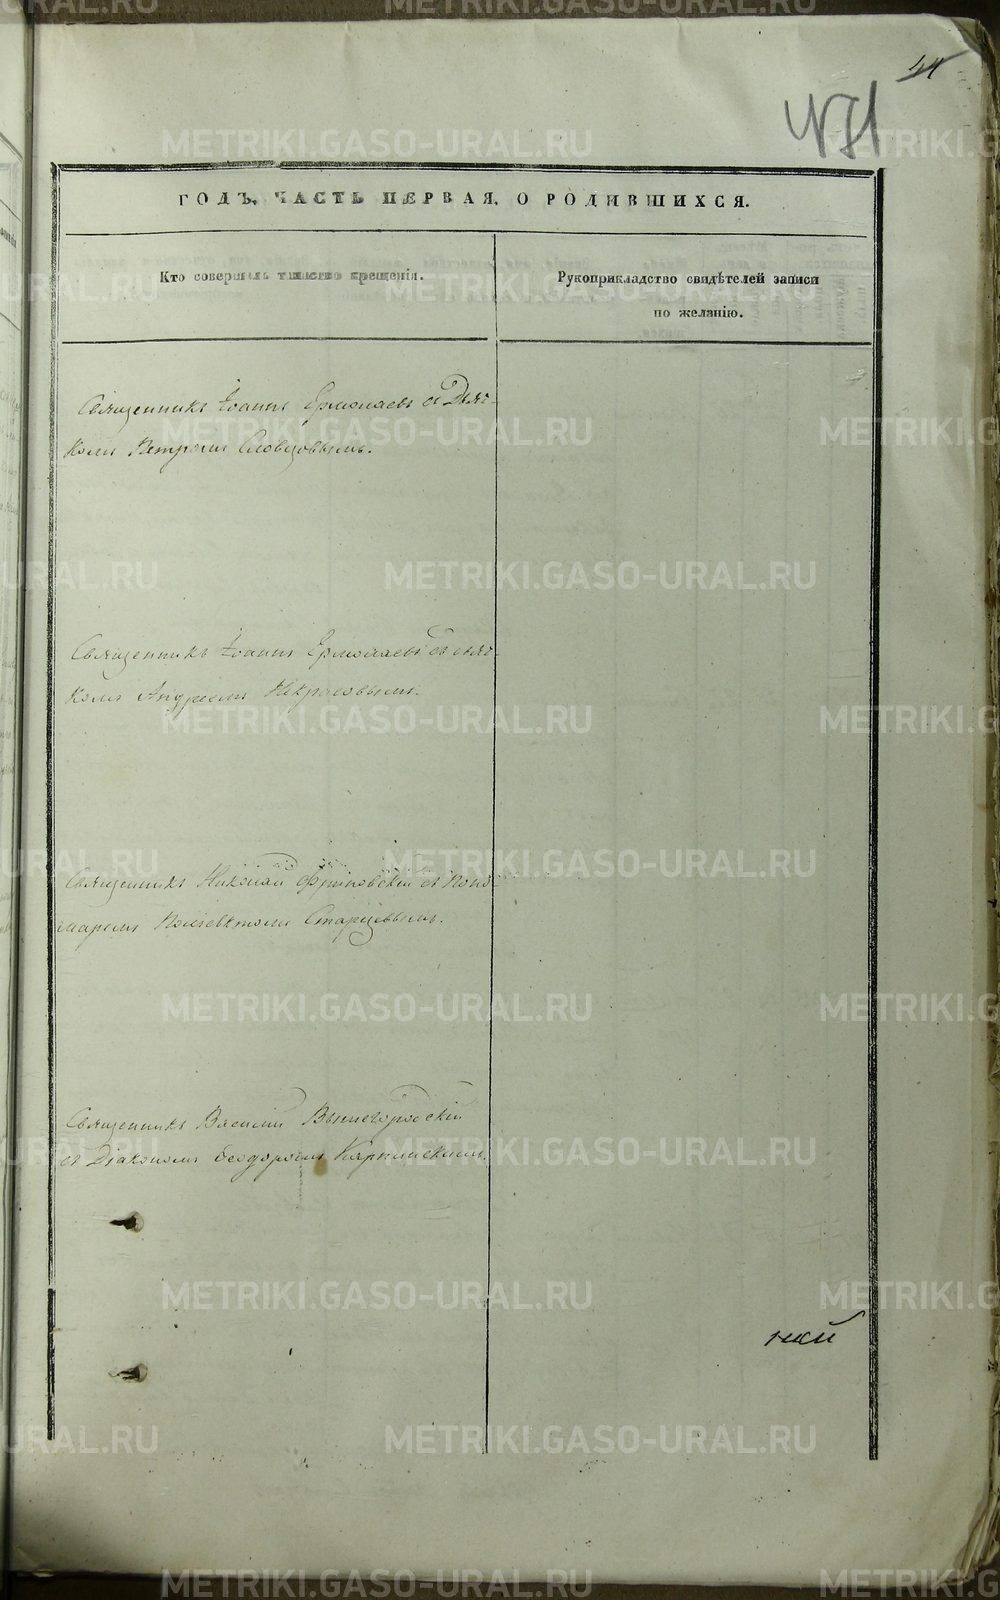 44
471
ГОДЪ, ЧАСТЬ ПЕРВАЯ, О РОДИВШИХСЯ.
Кто совершалъ таинство крещенія.
Рукоприкладство свидѣтелей записи
по желанію.
Священникъ Іоаннъ Ермолаевъ съ Дьяч-
комъ Петромъ Словцовымъ.
Священникъ Іоаннъ Ермолаевъ съ дьяч-
комъ Андреемъ Некрасовымъ.
Священникъ Николай съ Поно-
маремъ Полиевктомъ Старцевымъ.
Священникъ Василій Вышегородскій
съ Діакономъ Ѳеодоромъ Карпинскимъ.
METRIKI.GASO-URAL.RU